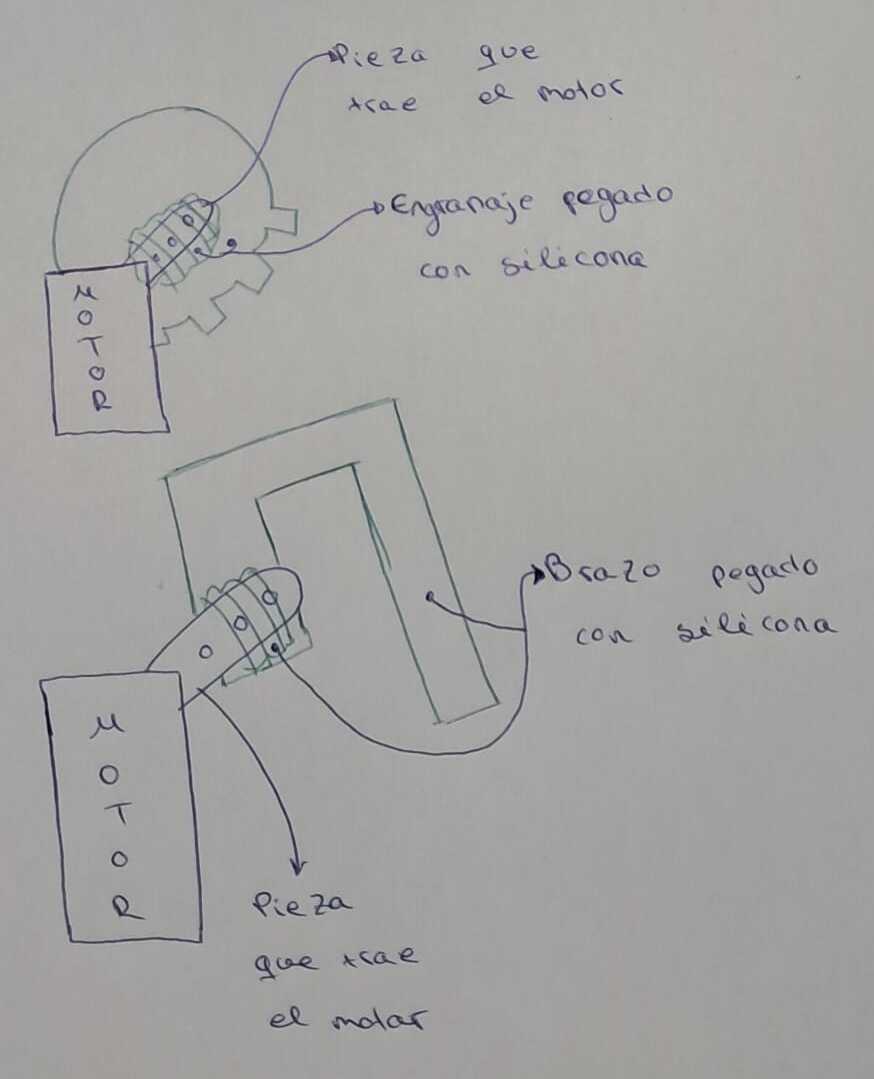 Pieza que
trae el motor
Engranaje pegado
con silicona
MOTOR
Brazo pegado
con silicona
MOTOR
Pieza
que trae
el motor